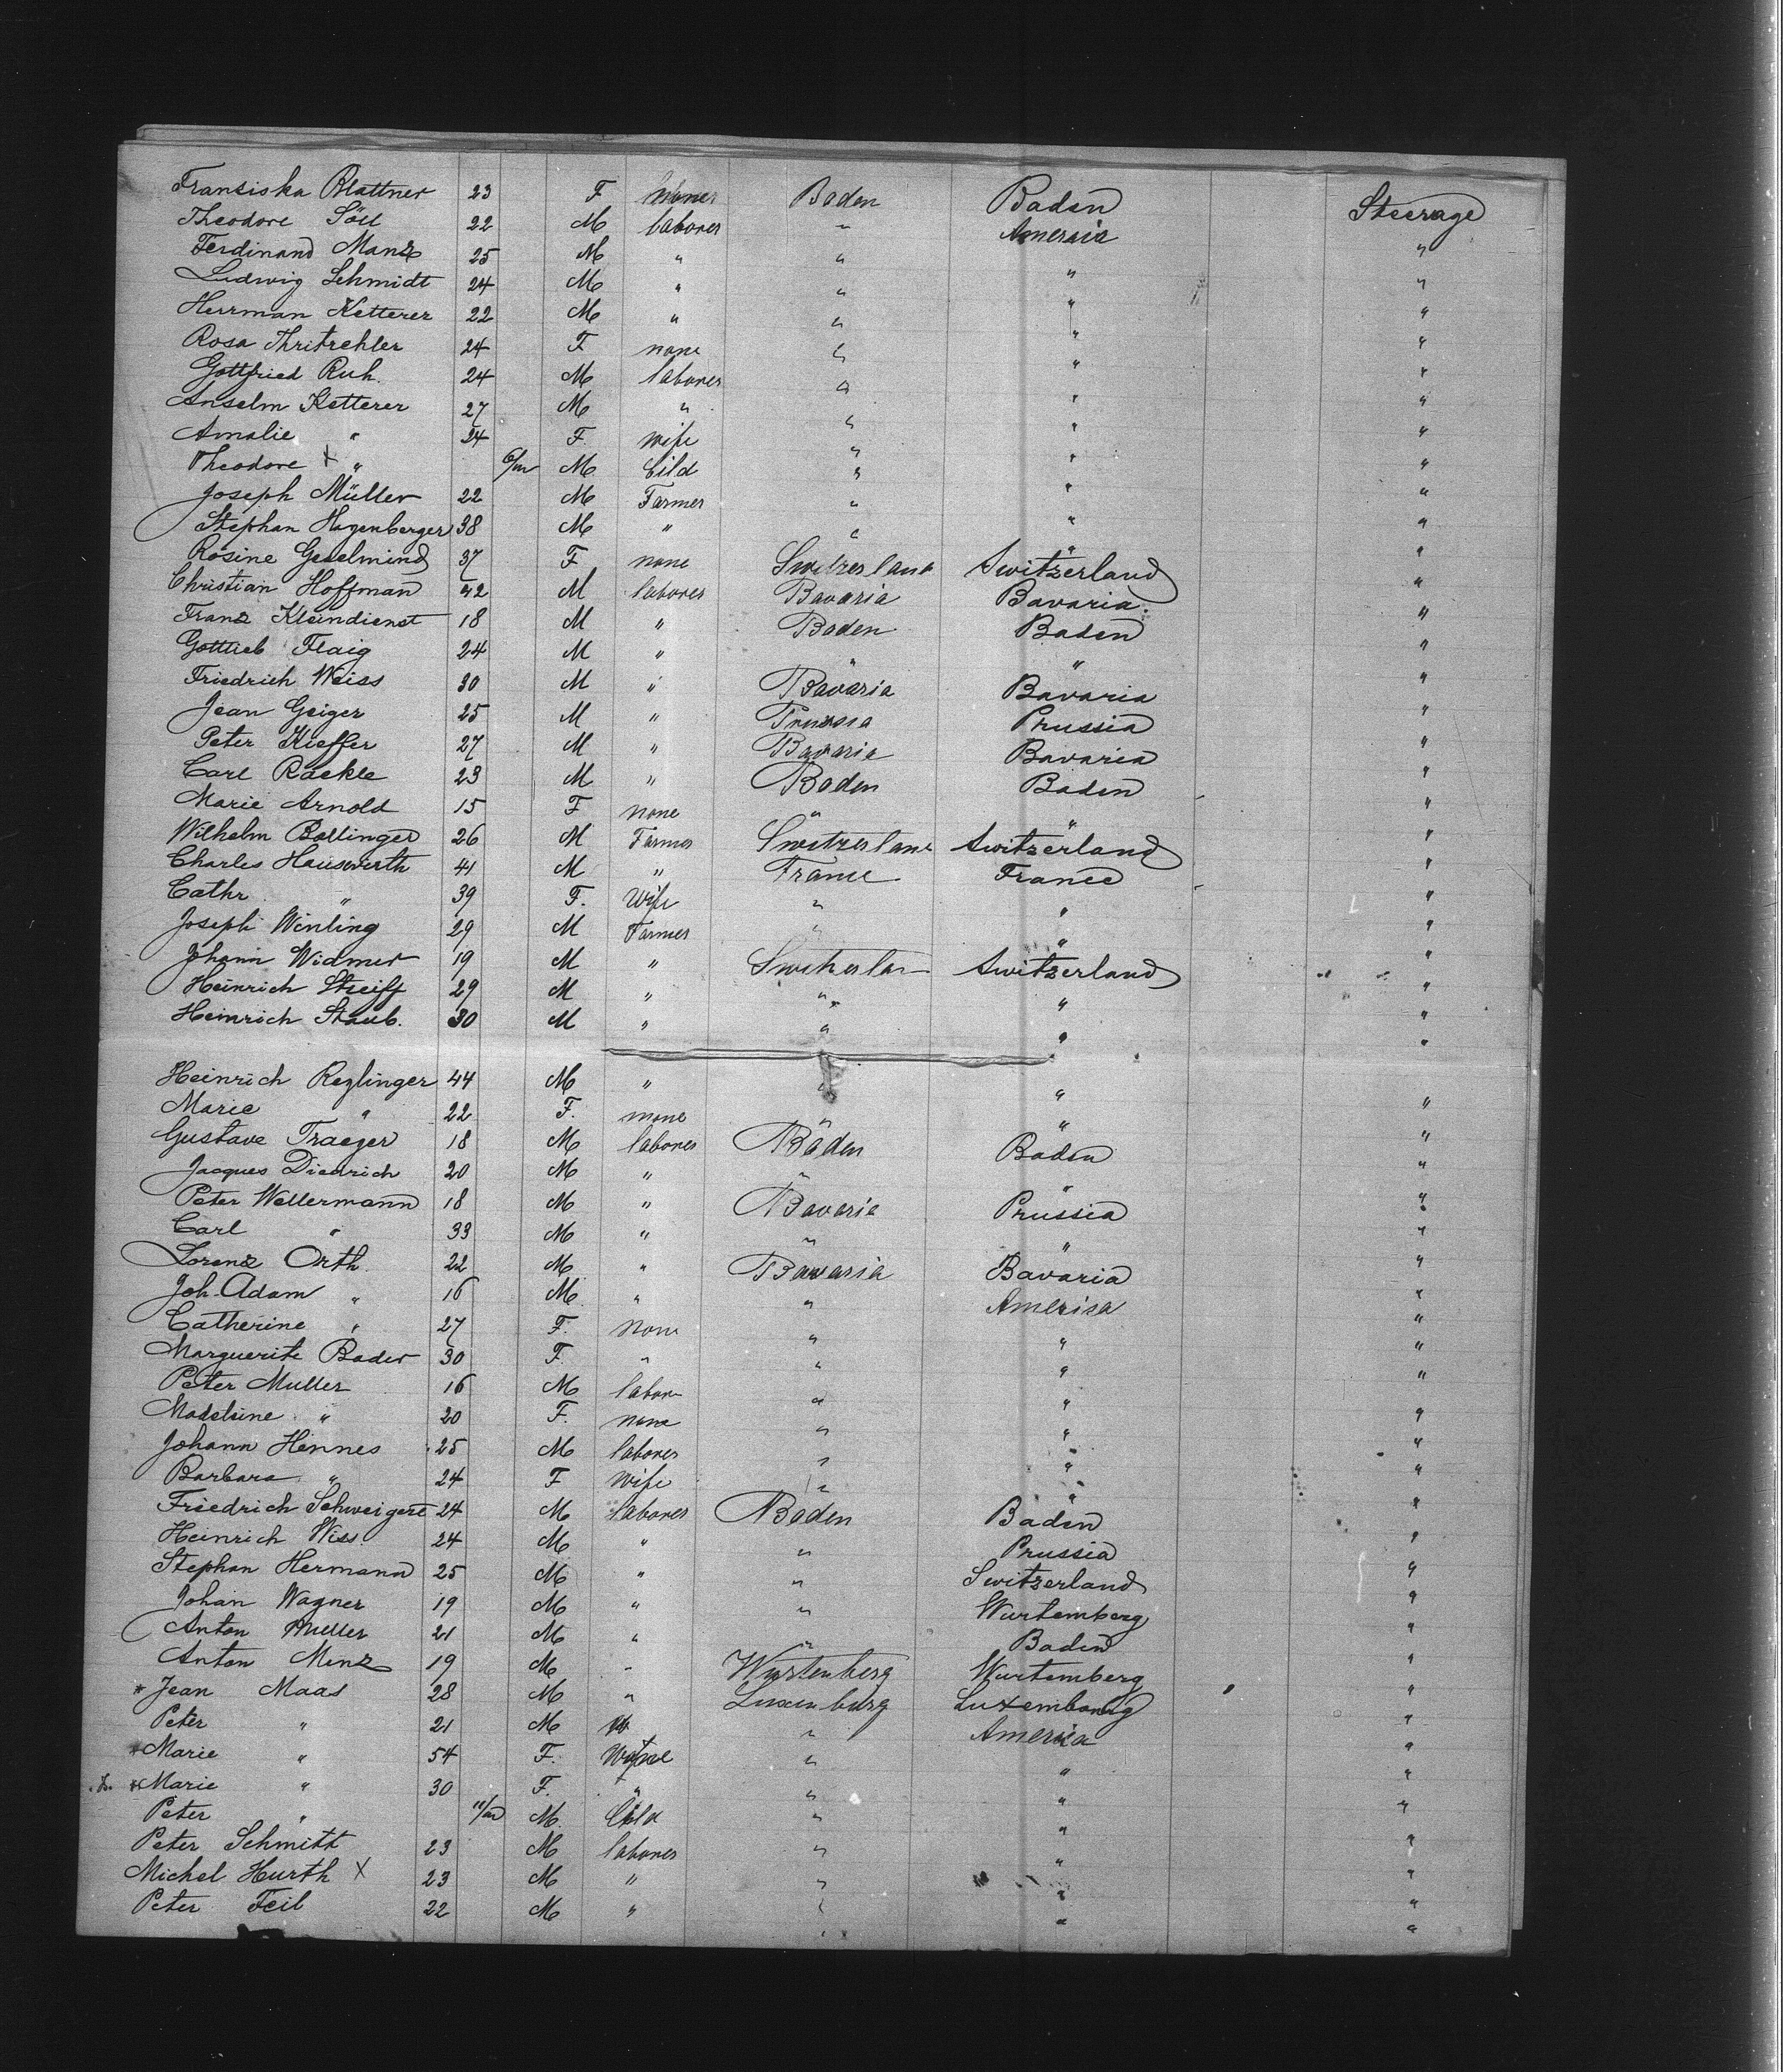 Fransiska Blattner 23 F none Baden Baden Steerage
Theodore Söll 22 M laborer " America "
Ferdinand Manz 25 M " " " "
Ludwig Schmidt 24 M " " " "
Herrman Ketterer 22 M " " " "
Rosa 24 F none " " "
Gottfried Ruh. 24 M laborer " " "
Anselm Ketterer 27 M " " " "
Amalie " 24 F. wife " " "
Theodore X " 6/m M Cild " " "
Joseph Müller 22 M Farmer " " "
Stephan Hagenberger 38 M " " " "
Rosine 37 F none Switzerland Switzerland "
Christian Hoffman 42 M laborer Bavaria Bavaria. "
Franz Kleindienst 18 M " Baden Baden "
Gottlieb Flaig 24 M " " " "
Friedrich Weiss 30 M " Bavaria Bavaria "
Jean Geiger 25 M " Prussia Prussia "
Peter Kieffer 27 M " Bavaria Bavaria "
Carl Rackle 23 M " Baden Baden "
Marie Arnold 15 F none " " "
Wilhelm Bollinger 26 M Farmer Switzerland Switzerland "
Charles Hauswirth 41 M " France France "
Cathr. " 39 F. Wife " " "
Joseph Winling 29 M Farmer " " "
Johann Widmer 19 M " Switzerlan Switzerland "
Heinrich Streiff 29 M " " " "
Heinrich Staub. 30 M " " " "
Heinrich Rezlinger 44 M " " " "
Marie " 22 F. none " " "
Gustave Traeger 18 M laborer Baden Baden "
Jacques Diedrich 20 M " " " "
Peter Wellermann 18 M " Bavaria Prussia "
Carl " 33 M " " " "
Lorenz Orth. 22 M " Bavaria Bavaria "
Joh. Adam " 16 M " " America "
Catherine " 27 F. None " " "
Marguerite Bader 30 F. " " " "
Peter Muller 16 M labor " " "
Madeleine " 20 F. none " " "
Johann Hennes 25 M laborer " " "
Barbara " 24 F wife " " "
Friedrich Schweigert 24 M laborer Baden Baden "
Heinrich Wiss. 24 M " " Prussia "
Stephan Hermann 25 M " " Switzerland "
Johan Wagner 19 M " " Wurtemberg "
Anton Muller 21 M " " Baden "
Anton Menz 19 M " Wurtenberg Wurtemberg "
* Jean Maas 28 M " Luxenburg Luxembourg "
Peter " 21 M " America "
* Marie " 54 F. " " "
* Marie " 30 F. " " " "
Peter " 11/m M. Cild " " "
Peter Schmitt 23 M laborer " " "
Michel Hurth X 23 M " " " "
Peter Feil 22 M " " " "